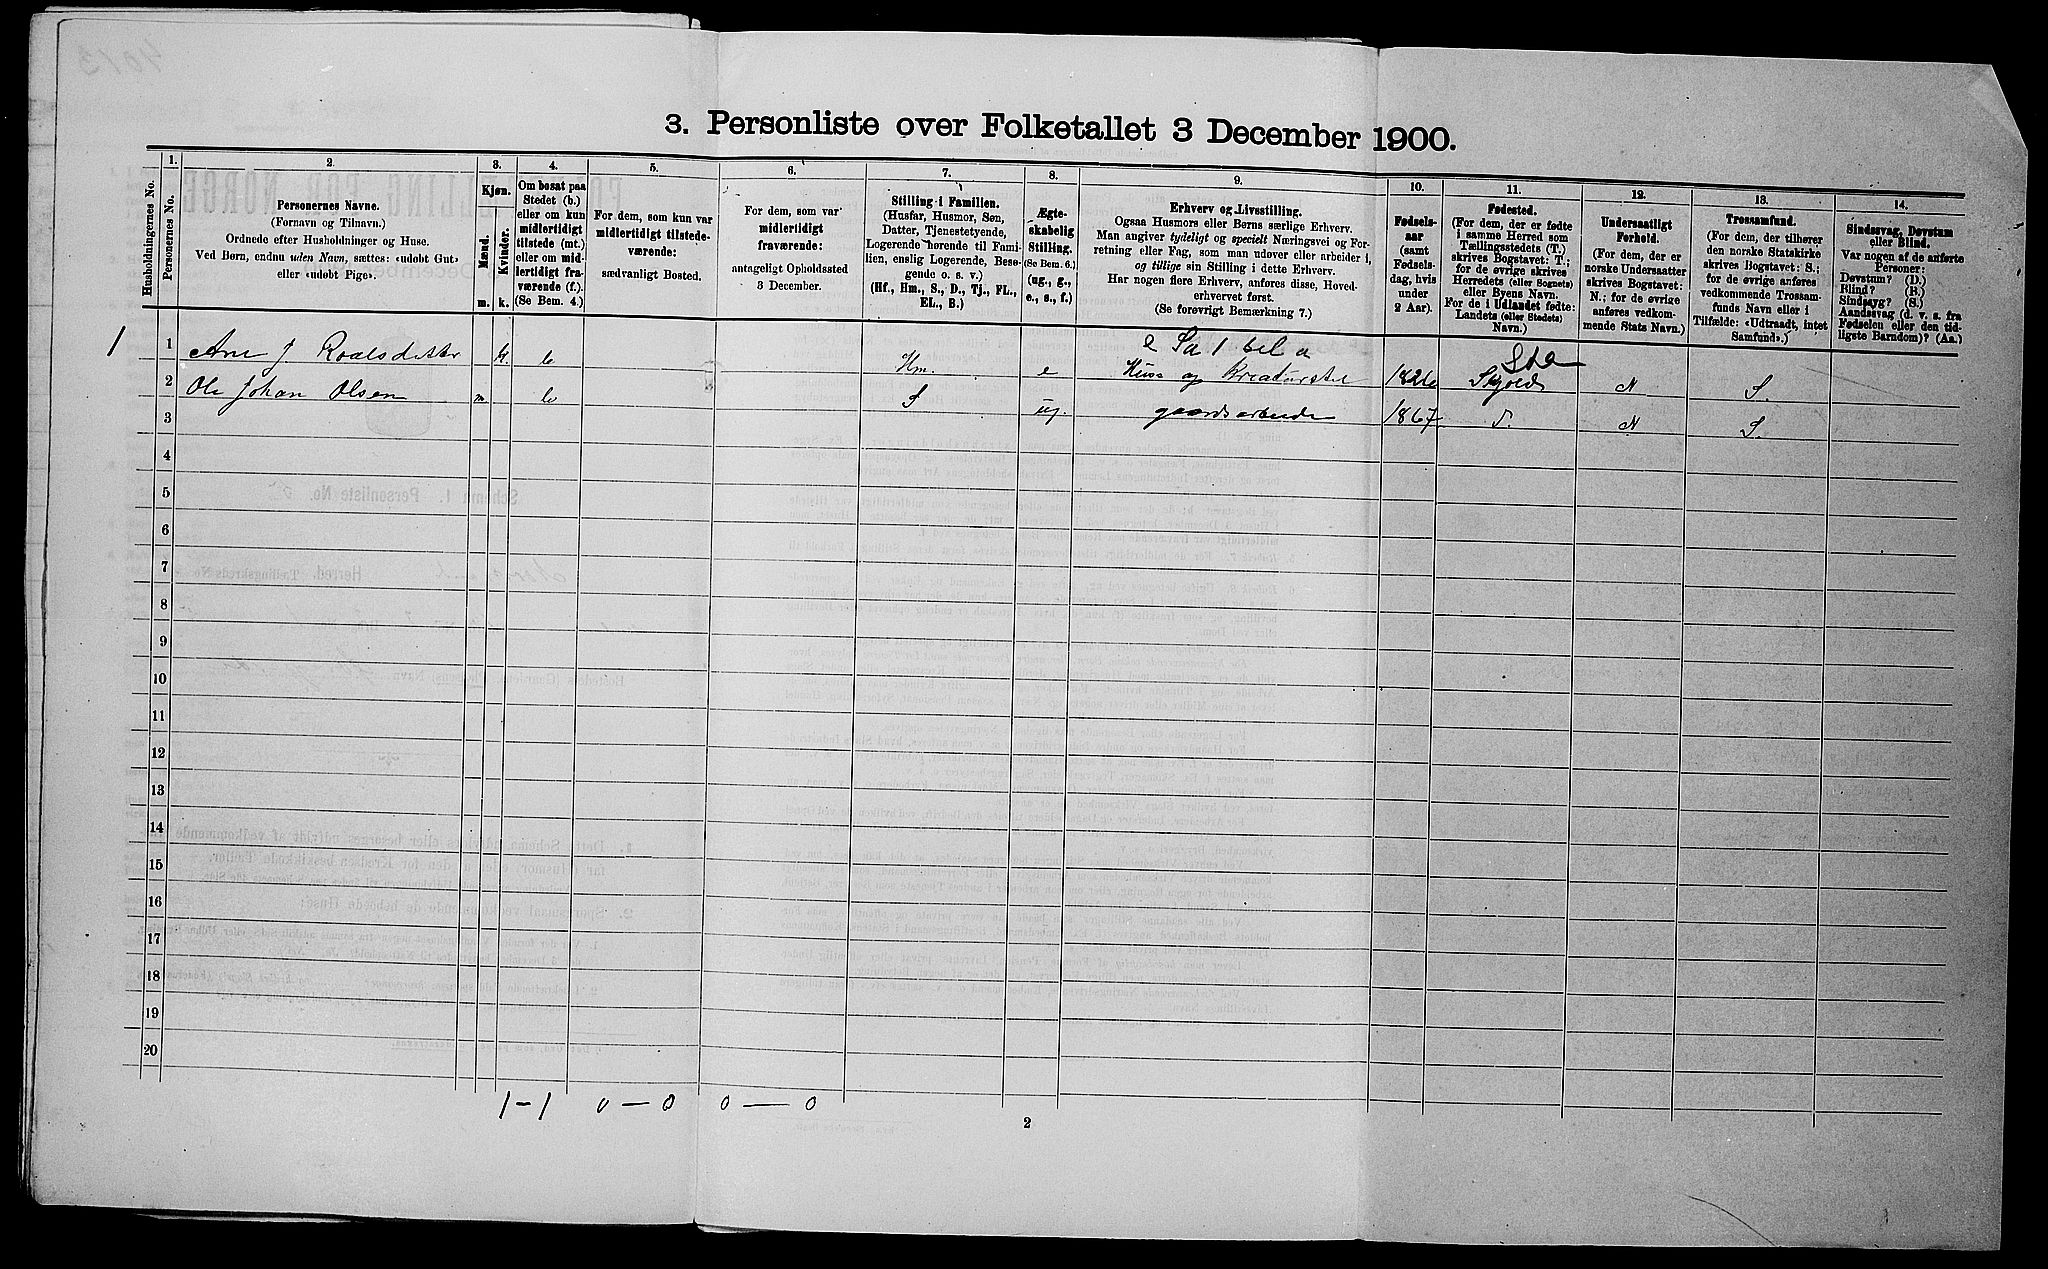 3. Personliste over Folketallet 3 December 1900.
Husholdningernes No.
1.
Personernes No.
2.
Personernes Navne.
(Fornavn og Tilnavn.)
Ordnede efter Husholdninger og Huse.
Ved Børn, endnu uden Navn, sættes: «udøbt Gut»
eller «udøbt Pige».
3.
Kjøn.
Mænd.
Kvinder.
m. k.
4.
Om bosat paa
Stedet (b.)
eller om kun
midlertidigt
tilstede (mt.)
eller om mid-
lertidigt fra-
værende (f.).
(Se Bem. 4.)
5.
For dem, som kun var
midlertidigt tilstede-
værende:
sædvanligt Bosted.
6.
For dem, som var
midlertidigt
fraværende:
antageligt Opholdssted
3 December.
7.
Stilling i Familien.
(Husfar, Husmor, Søn,
Datter, Tjenestetyende,
Logerende hørende til Fami-
lien, enslig Logerende, Besø-
gende o. s. v.)
(Hf., Hm., S., D., Tj., FL.,
EL., B.)
8.
Ægte-
skabelig
Stilling.
(Se Bem. 6.)
(ug., g.,
e., s., f.)
9.
Erhverv og Livsstilling.
Ogsaa Husmors eller Børns særlige Erhverv.
Man angiver tydeligt og specielt Næringsvei og For-
retning eller Fag, som man udøver eller arbeider i,
og tillige sin Stilling i dette Erhverv.
Har nogen flere Erhverv, anføres disse, Hoved-
erhvervet først.
(Se forøvrigt Bemærkning 7.)
10.
Fødsels-
aar
(samt
Fødsels-
dag, hvis
under
2 Aar).
11.
Fødested.
(For dem, der er fødte
i samme Herred som
Tællingsstedets (T.)
skrives Bogstavet: T.;
for de øvrige skrives
Herredets (eller Sognets)
eller Byens Navn.
For de i Udlandet fødte:
Landets (eller Stedets)
Navn.)
12.
Undersaatligt
Forhold.
(For dem, der er
norske Undersaatter
skrives Bogstavet:
N.; for de øvrige
anføres vedkom-
mende Stats Navn.)
13.
Trossamfund.
(For dem, der tilhører
den norske Statskirke
skrives Bogstavet: S.;
for de øvrige anføres
vedkommende Trossam-
funds Navn eller i
Tilfælde: «Udtraadt, intet
Samfund».)
14.
Sindssvag, Døvstum
eller Blind.
Var nogen af de anførte
Personer:
Døvstum? (D.)
Blind? (B.)
Sindssyg? (S.)
Aandssvag (d. v. s. fra
Fødselen eller den tid-
ligste Barndom)? (Aa.)
e Sa 1 bel a
1 1 Ane J Roalsdetter k. b Hm. e Huss og Kreaturstel 1826 Skjold N S.
2 Ole Johan Olsen m b S ug. gaardsarbeide 1867 T. N S.
3
4
5
6
7
8
9
10
11
12
13
14
15
16
17
18
19
20
1-1 0-0 0-0
2